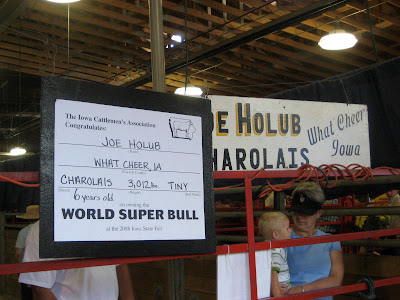 The Iowa Cattlemen's Association
Congratulates:
JOE HOLUB
WHAT CHEER, IA
CHAROLAIS 3,012 lbs. TINY
6 years old on owning the
WORLD SUPER BULL
at the 2006 Iowa State Fair
OE HOLUB
CHAROLAIS
What Cheer
Iowa